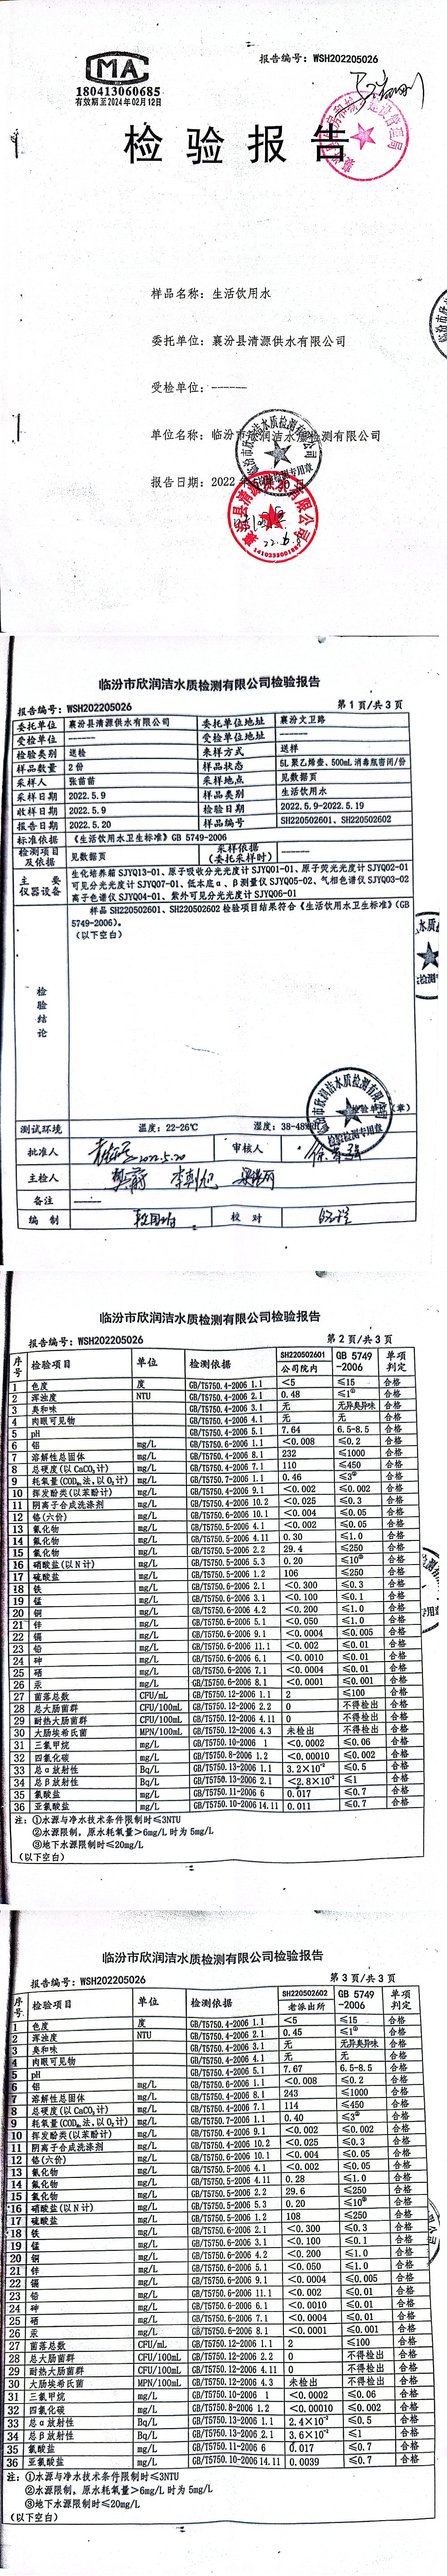 报告编号：WSH202205026
CMA
180413060685
有效期至2024年02月12日
检验报告
样品名称：生活饮用水
委托单位：襄汾县清源供水有限公司
受检单位：------
单位名称：临汾市欣润洁水质检测有限公司
报告日期：2022年5月20日
22.6.8
临汾市欣润洁水质检测有限公司检验报告
报告编号：WSH202205026 第 1 页/共 3 页
委托单位 襄汾县清源供水有限公司 委托单位地址 襄汾文卫路
受检单位 ------ 受检单位地址 ------
检验类别 送检 来样方式 送样
样品数量 2 份 样品状态 5L 聚乙烯壶、500mL 消毒瓶密闭/份
采样人 张苗苗 采样地点 见数据页
采样日期 2022.5.9 样品类别 生活饮用水
收样日期 2022.5.9 检验日期 2022.5.9-2022.5.19
报告日期 2022.5.20 样品编号 SH220502601、SH220502602
标准依据 《生活饮用水卫生标准》GB 5749-2006
检测项目及依据 见数据页 采样依据（委托采样时） ------
主要仪器设备 生化培养箱 SJYQ13-01、原子吸收分光光度计 SJYQ01-01、原子荧光光度计 SJYQ02-01
可见分光光度计 SJYQ07-01、低本底α、β测量仪 SJYQ05-02、气相色谱仪 SJYQ03-02
离子色谱仪 SJYQ04-01、紫外可见分光光度计 SJYQ06-01
检验结论
样品 SH220502601、SH220502602 检验项目结果符合《生活饮用水卫生标准》(GB
5749-2006)。
（以下空白）
检验单位（章）
测试环境 温度：22-26℃ 湿度：38-48%RH
批准人 2022.5.20 审核人
主检人
备注 ------
编制 校对
临汾市欣润洁水质检测有限公司检验报告
报告编号：WSH202205026 第 2 页/共 3 页
序号 检验项目 单位 检测依据 SH220502601 公司院内 GB 5749-2006 单项判定
1 色度 度 GB/T5750.4-2006 1.1 <5 ≤15 合格
2 浑浊度 NTU GB/T5750.4-2006 2.1 0.48 ≤1① 合格
3 臭和味 GB/T5750.4-2006 3.1 无 无异臭异味 合格
4 肉眼可见物 GB/T5750.4-2006 4.1 无 无 合格
5 pH GB/T5750.4-2006 5.1 7.64 6.5-8.5 合格
6 铝 mg/L GB/T5750.6-2006 1.1 <0.008 ≤0.2 合格
7 溶解性总固体 mg/L GB/T5750.4-2006 8.1 232 ≤1000 合格
8 总硬度(以 CaCO3 计) mg/L GB/T5750.4-2006 7.1 110 ≤450 合格
9 耗氧量(CODMn法,以 O2 计) mg/L GB/T5750.7-2006 1.1 0.46 ≤3② 合格
10 挥发酚类(以苯酚计) mg/L GB/T5750.4-2006 9.1 <0.002 ≤0.002 合格
11 阴离子合成洗涤剂 mg/L GB/T5750.4-2006 10.2 <0.025 ≤0.3 合格
12 铬(六价) mg/L GB/T5750.6-2006 10.1 <0.004 ≤0.05 合格
13 氰化物 mg/L GB/T5750.5-2006 4.1 <0.002 ≤0.05 合格
14 氟化物 mg/L GB/T5750.5-2006 4.11 0.30 ≤1.0 合格
15 氯化物 mg/L GB/T5750.5-2006 2.2 29.4 ≤250 合格
16 硝酸盐(以 N 计) mg/L GB/T5750.5-2006 5.3 0.20 ≤10③ 合格
17 硫酸盐 mg/L GB/T5750.5-2006 1.2 106 ≤250 合格
18 铁 mg/L GB/T5750.6-2006 2.1 <0.300 ≤0.3 合格
19 锰 mg/L GB/T5750.6-2006 3.1 <0.100 ≤0.1 合格
20 铜 mg/L GB/T5750.6-2006 4.2 <0.200 ≤1.0 合格
21 锌 mg/L GB/T5750.6-2006 5.1 <0.050 ≤1.0 合格
22 镉 mg/L GB/T5750.6-2006 9.1 <0.0004 ≤0.005 合格
23 铅 mg/L GB/T5750.6-2006 11.1 <0.002 ≤0.01 合格
24 砷 mg/L GB/T5750.6-2006 6.1 <0.0010 ≤0.01 合格
25 硒 mg/L GB/T5750.6-2006 7.1 <0.0004 ≤0.01 合格
26 汞 mg/L GB/T5750.6-2006 8.1 <0.0001 ≤0.001 合格
27 菌落总数 CFU/mL GB/T5750.12-2006 1.1 2 ≤100 合格
28 总大肠菌群 CFU/100mL GB/T5750.12-2006 2.2 0 不得检出 合格
29 耐热大肠菌群 CFU/100mL GB/T5750.12-2006 4.11 0 不得检出 合格
30 大肠埃希氏菌 MPN/100mL GB/T5750.12-2006 4.3 未检出 不得检出 合格
31 三氯甲烷 mg/L GB/T5750.10-2006 1 <0.0002 ≤0.06 合格
32 四氯化碳 mg/L GB/T5750.8-2006 1.2 <0.00010 ≤0.002 合格
33 总α放射性 Bq/L GB/T5750.13-2006 1.1 3.2×10⁻² ≤0.5 合格
34 总β放射性 Bq/L GB/T5750.13-2006 2.1 <2.8×10⁻² ≤1 合格
35 氯酸盐 mg/L GB/T5750.11-2006 6 0.017 ≤0.7 合格
36 亚氯酸盐 mg/L GB/T5750.10-2006 14.11 0.011 ≤0.7 合格
注：①水源与净水技术条件限制时≤3NTU
②水源限制，原水耗氧量>6mg/L 时为 5mg/L
③地下水源限制时≤20mg/L
（以下空白）
临汾市欣润洁水质检测有限公司检验报告
报告编号：WSH202205026 第 3 页/共 3 页
序号 检验项目 单位 检测依据 SH220502602 老派出所 GB 5749-2006 单项判定
1 色度 度 GB/T5750.4-2006 1.1 <5 ≤15 合格
2 浑浊度 NTU GB/T5750.4-2006 2.1 0.45 ≤1① 合格
3 臭和味 GB/T5750.4-2006 3.1 无 无异臭异味 合格
4 肉眼可见物 GB/T5750.4-2006 4.1 无 无 合格
5 pH GB/T5750.4-2006 5.1 7.67 6.5-8.5 合格
6 铝 mg/L GB/T5750.6-2006 1.1 <0.008 ≤0.2 合格
7 溶解性总固体 mg/L GB/T5750.4-2006 8.1 243 ≤1000 合格
8 总硬度(以 CaCO3 计) mg/L GB/T5750.4-2006 7.1 114 ≤450 合格
9 耗氧量(CODMn法,以 O2 计) mg/L GB/T5750.7-2006 1.1 0.40 ≤3② 合格
10 挥发酚类(以苯酚计) mg/L GB/T5750.4-2006 9.1 <0.002 ≤0.002 合格
11 阴离子合成洗涤剂 mg/L GB/T5750.4-2006 10.2 <0.025 ≤0.3 合格
12 铬(六价) mg/L GB/T5750.6-2006 10.1 <0.004 ≤0.05 合格
13 氰化物 mg/L GB/T5750.5-2006 4.1 <0.002 ≤0.05 合格
14 氟化物 mg/L GB/T5750.5-2006 4.11 0.28 ≤1.0 合格
15 氯化物 mg/L GB/T5750.5-2006 2.2 29.6 ≤250 合格
16 硝酸盐(以 N 计) mg/L GB/T5750.5-2006 5.3 0.20 ≤10③ 合格
17 硫酸盐 mg/L GB/T5750.5-2006 1.2 108 ≤250 合格
18 铁 mg/L GB/T5750.6-2006 2.1 <0.300 ≤0.3 合格
19 锰 mg/L GB/T5750.6-2006 3.1 <0.100 ≤0.1 合格
20 铜 mg/L GB/T5750.6-2006 4.2 <0.200 ≤1.0 合格
21 锌 mg/L GB/T5750.6-2006 5.1 <0.050 ≤1.0 合格
22 镉 mg/L GB/T5750.6-2006 9.1 <0.0004 ≤0.005 合格
23 铅 mg/L GB/T5750.6-2006 11.1 <0.002 ≤0.01 合格
24 砷 mg/L GB/T5750.6-2006 6.1 <0.0010 ≤0.01 合格
25 硒 mg/L GB/T5750.6-2006 7.1 <0.0004 ≤0.01 合格
26 汞 mg/L GB/T5750.6-2006 8.1 <0.0001 ≤0.001 合格
27 菌落总数 CFU/mL GB/T5750.12-2006 1.1 2 ≤100 合格
28 总大肠菌群 CFU/100mL GB/T5750.12-2006 2.2 0 不得检出 合格
29 耐热大肠菌群 CFU/100mL GB/T5750.12-2006 4.11 0 不得检出 合格
30 大肠埃希氏菌 MPN/100mL GB/T5750.12-2006 4.3 未检出 不得检出 合格
31 三氯甲烷 mg/L GB/T5750.10-2006 1 <0.0002 ≤0.06 合格
32 四氯化碳 mg/L GB/T5750.8-2006 1.2 <0.00010 ≤0.002 合格
33 总α放射性 Bq/L GB/T5750.13-2006 1.1 2.4×10⁻² ≤0.5 合格
34 总β放射性 Bq/L GB/T5750.13-2006 2.1 3.6×10⁻² ≤1 合格
35 氯酸盐 mg/L GB/T5750.11-2006 6 0.017 ≤0.7 合格
36 亚氯酸盐 mg/L GB/T5750.10-2006 14.11 0.0039 ≤0.7 合格
注：①水源与净水技术条件限制时≤3NTU
②水源限制，原水耗氧量>6mg/L 时为 5mg/L
③地下水源限制时≤20mg/L
（以下空白）